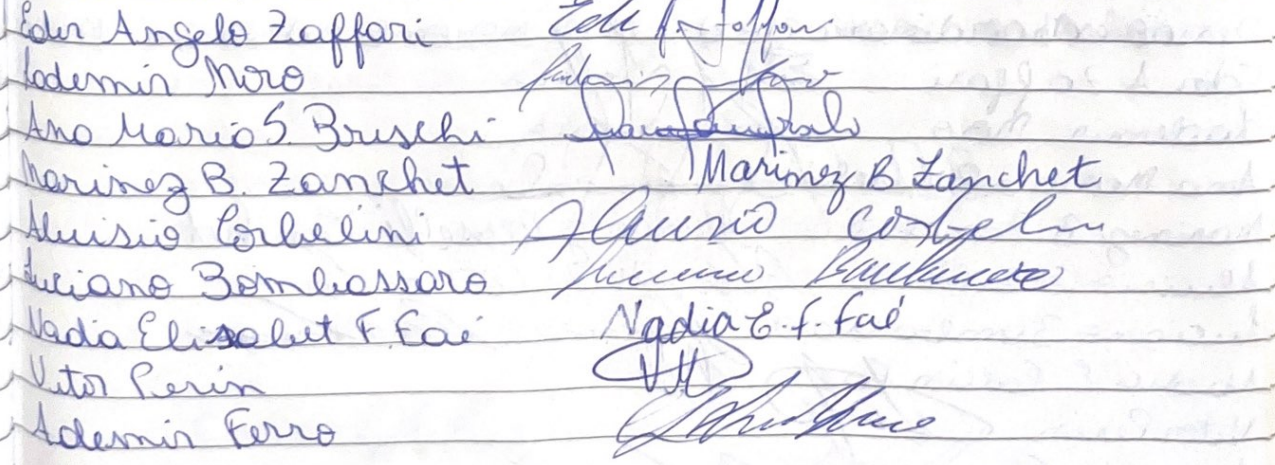 Eder Angelo Zaffari
Lademir Moro
Ana Maria S. Bruschi
Marinez B. Zanchet Marinez B Zanchet
Aluisio Corbelini Aluisio Corbelini
Luciano Bombassaro Luciano Bombassaro
Nadia Elisabet F. Faé Nadia E. f. faé
Vitor Perin
Ademir Ferro